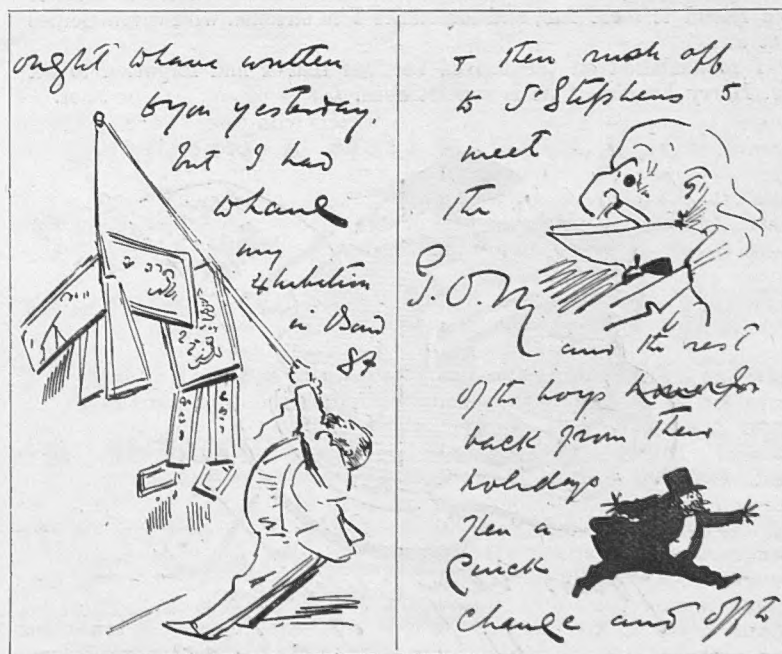 ought to have written
to you yesterday,
but I had
to have
my
Exhibition
in Bond
St
& then rush off
to St Stephens to
meet
the
G.O.M
and the rest
of the boys
back from their
holidays
then a
Quick
change and off to